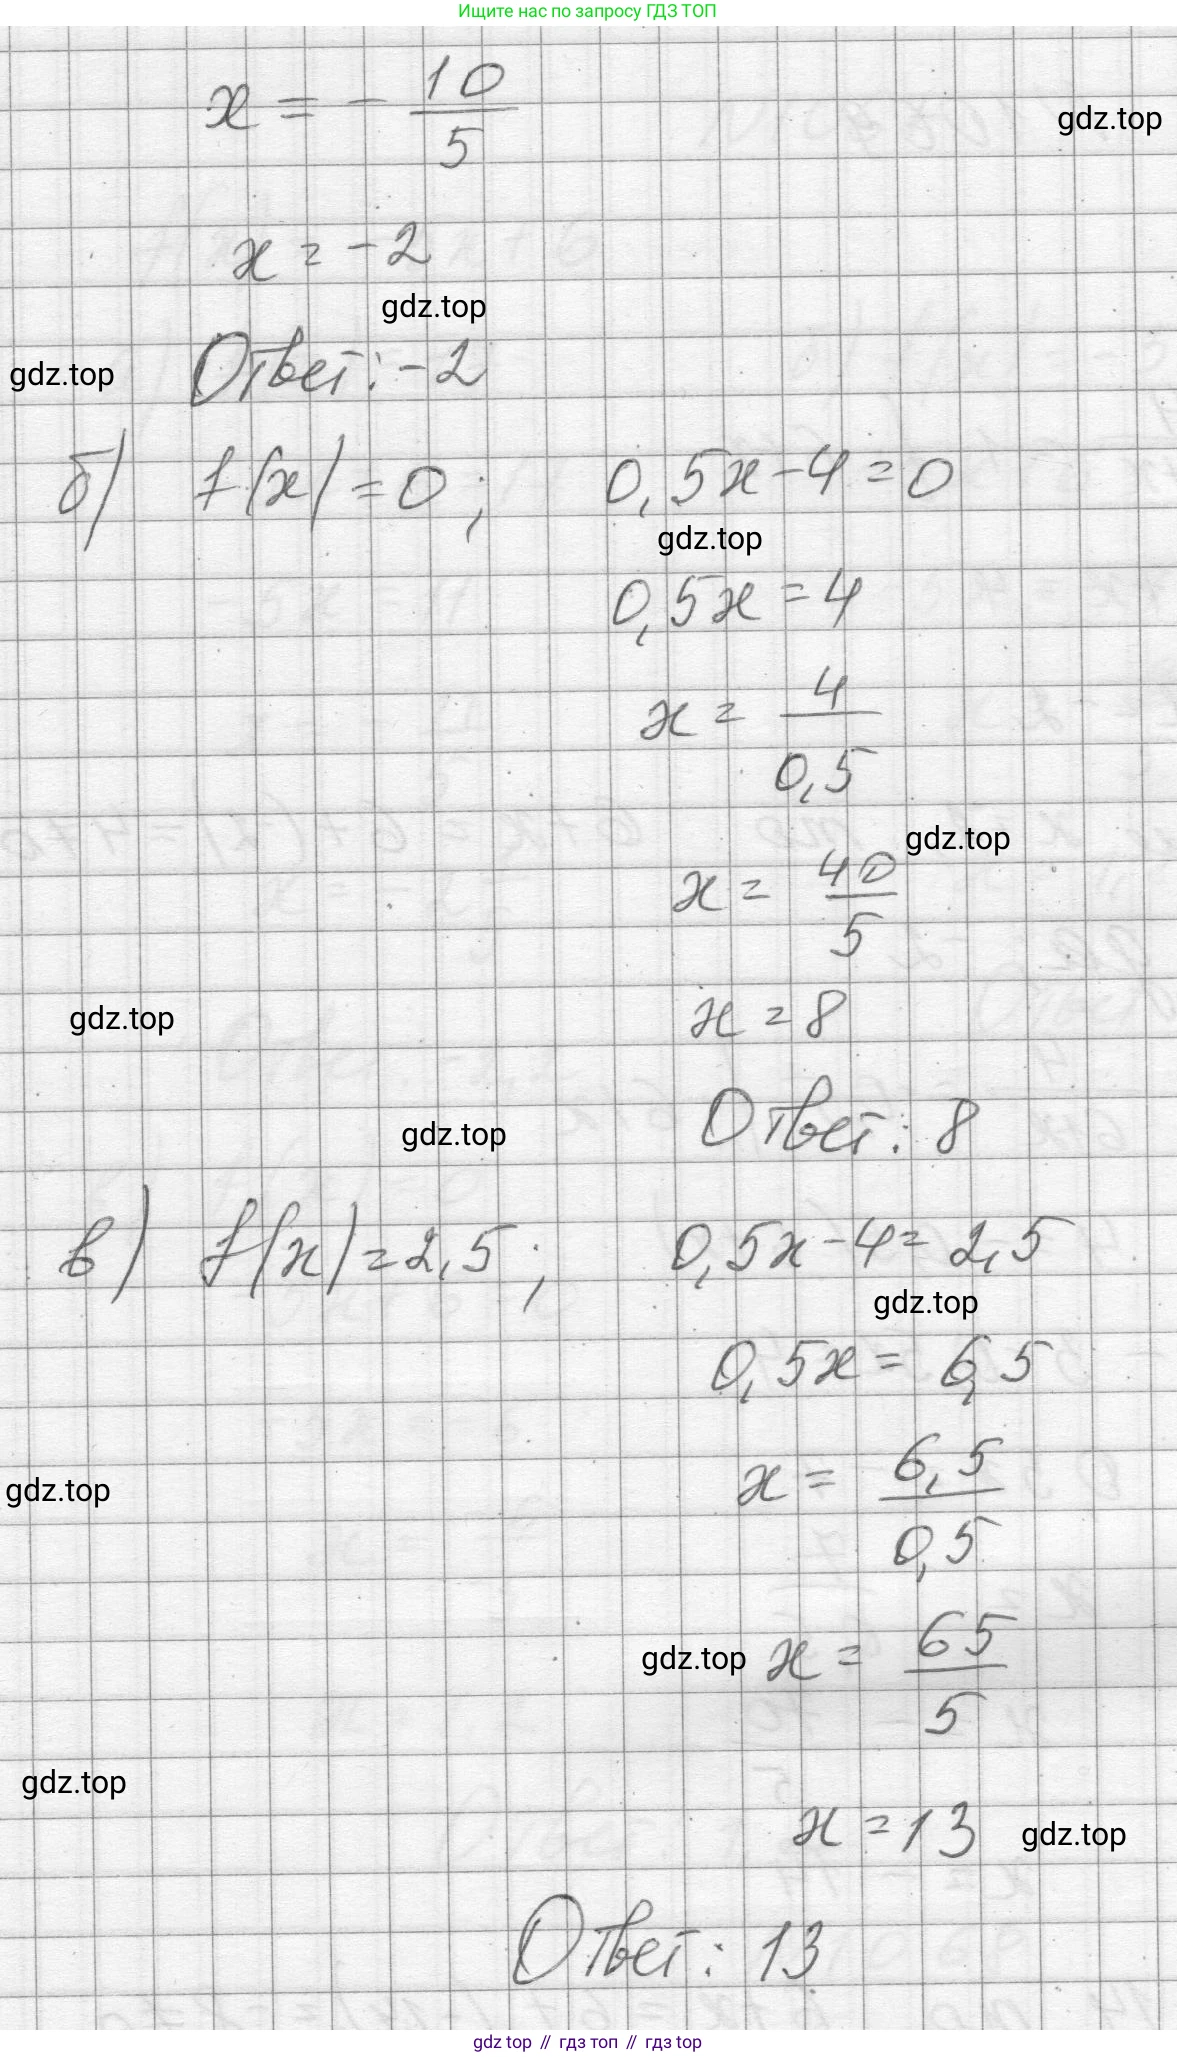 Ищите нас по запросу ГДЗ ТОП
x = - 10/5
gdz.top
x = -2
gdz.top
gdz.top
Ответ: -2
б) f(x) = 0; 0,5x - 4 = 0
gdz.top
0,5x = 4
x = 4/0,5
gdz.top
x = 40/5
gdz.top
x = 8
gdz.top
Ответ: 8
в) f(x) = 2,5; 0,5x - 4 = 2,5
gdz.top
0,5x = 6,5
gdz.top
x = 6,5/0,5
gdz.top
x = 65/5
gdz.top
x = 13
gdz.top
Ответ: 13
gdz top // гдз топ // гдз top